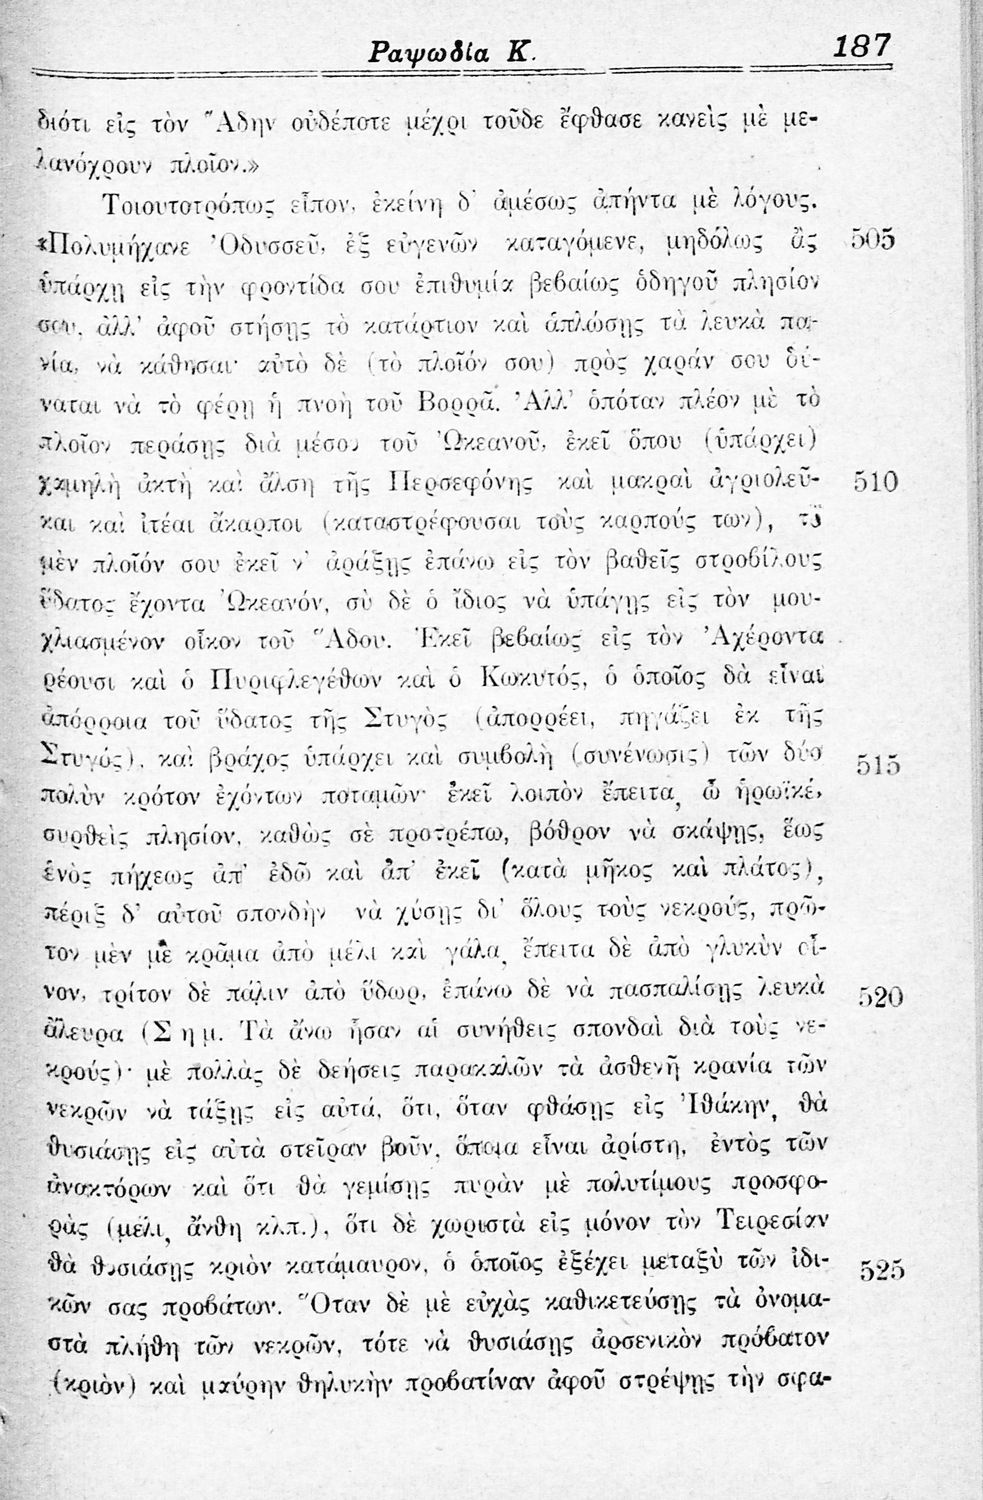 Ραψωδία Κ.
187
διότι εἰς τὸν Ἅδην οὐδέποτε μέχρι τοῦδε ἔφθασε κανεὶς μὲ με-
λανόχρουν πλοῖον.»
Τοιουτοτρόπως εἶπον, ἐκείνη δ' ἀμέσως ἀπήντα μὲ λόγους.
«Πολυμήχανε Ὀδυσσεῦ, ἐξ εὐγενῶν καταγόμενε, μηδόλως ἂς 505
ὑπάρχῃ εἰς τὴν φροντίδα σου ἐπιθυμία βεβαίως ὁδηγοῦ πλησίον
σου, ἀλλ' ἀφοῦ στήσῃς τὸ κατάρτιον καὶ ἁπλώσῃς τὰ λευκὰ πα-
νία, νὰ κάθησαι· αὐτὸ δὲ (τὸ πλοῖόν σου) πρὸς χαράν σου δύ-
ναται νὰ τὸ φέρῃ ἡ πνοὴ τοῦ Βορρᾶ. Ἀλλ' ὁπόταν πλέον μὲ τὸ
πλοῖον περάσῃς διὰ μέσου τοῦ Ὠκεανοῦ, ἐκεῖ ὅπου (ὑπάρχει)
χαμηλὴ ἀκτὴ καὶ ἄλση τῆς Περσεφόνης καὶ μακραὶ ἀγριολεῦ- 510
και καὶ ἰτέαι ἄκαρποι (καταστρέφουσαι τοὺς καρπούς των), τὸ
μὲν πλοῖόν σου ἐκεῖ ν' ἀράξῃς ἐπάνω εἰς τὸν βαθεῖς στροβίλους
ὕδατος ἔχοντα Ὠκεανόν, σὺ δὲ ὁ ἴδιος νὰ ὑπάγῃς εἰς τὸν μου-
χλιασμένον οἶκον τοῦ Ἅδου. Ἐκεῖ βεβαίως εἰς τὸν Ἀχέροντα
ρέουσι καὶ ὁ Πυριφλεγέθων καὶ ὁ Κωκυτός, ὁ ὁποῖος δὰ εἶναι
ἀπόρροια τοῦ ὕδατος τῆς Στυγὸς (ἀπορρέει, πηγάζει ἐκ τῆς
Στυγός), καὶ βράχος ὑπάρχει καὶ συμβολὴ (συνένωσις) τῶν δύο 515
πολὺν κρότον ἐχόντων ποταμῶν· ἐκεῖ λοιπὸν ἔπειτα, ὦ ἡρωϊκέ,
συρθεὶς πλησίον, καθὼς σὲ προτρέπω, βόθρον νὰ σκάψῃς, ἕως
ἑνὸς πήχεως ἀπ' ἐδῶ καὶ ἀπ' ἐκεῖ (κατὰ μῆκος καὶ πλάτος),
πέριξ δ' αὐτοῦ σπονδὴν νὰ χύσῃς δι' ὅλους τοὺς νεκρούς, πρῶ-
τον μὲν μὲ κρᾶμα ἀπὸ μέλι καὶ γάλα, ἔπειτα δὲ ἀπὸ γλυκὺν οἶ-
νον, τρίτον δὲ πάλιν ἀπὸ ὕδωρ, ἐπάνω δὲ νὰ πασπαλίσῃς λευκὰ 520
ἄλευρα (Σημ. Τὰ ἄνω ἦσαν αἱ συνήθεις σπονδαὶ διὰ τοὺς νε-
κρούς)· μὲ πολλὰς δὲ δεήσεις παρακαλῶν τὰ ἀσθενῆ κρανία τῶν
νεκρῶν νὰ τάξῃς εἰς αὐτά, ὅτι, ὅταν φθάσῃς εἰς Ἰθάκην, θὰ
θυσιάσῃς εἰς αὐτὰ στεῖραν βοῦν, ὅποια εἶναι ἀρίστη, ἐντὸς τῶν
ἀνακτόρων καὶ ὅτι θὰ γεμίσῃς πυρὰν μὲ πολυτίμους προσφο-
ρὰς (μέλι, ἄνθη κλπ.), ὅτι δὲ χωριστὰ εἰς μόνον τὸν Τειρεσίαν
θὰ θυσιάσῃς κριὸν κατάμαυρον, ὁ ὁποῖος ἐξέχει μεταξὺ τῶν ἰδι- 525
κῶν σας προβάτων. Ὅταν δὲ μὲ εὐχὰς καθικετεύσῃς τὰ ὀνομα-
στὰ πλήθη τῶν νεκρῶν, τότε νὰ θυσιάσῃς ἀρσενικὸν πρόβατον
(κριὸν) καὶ μαύρην θηλυκὴν προβατίναν ἀφοῦ στρέψῃς τὴν σφα-